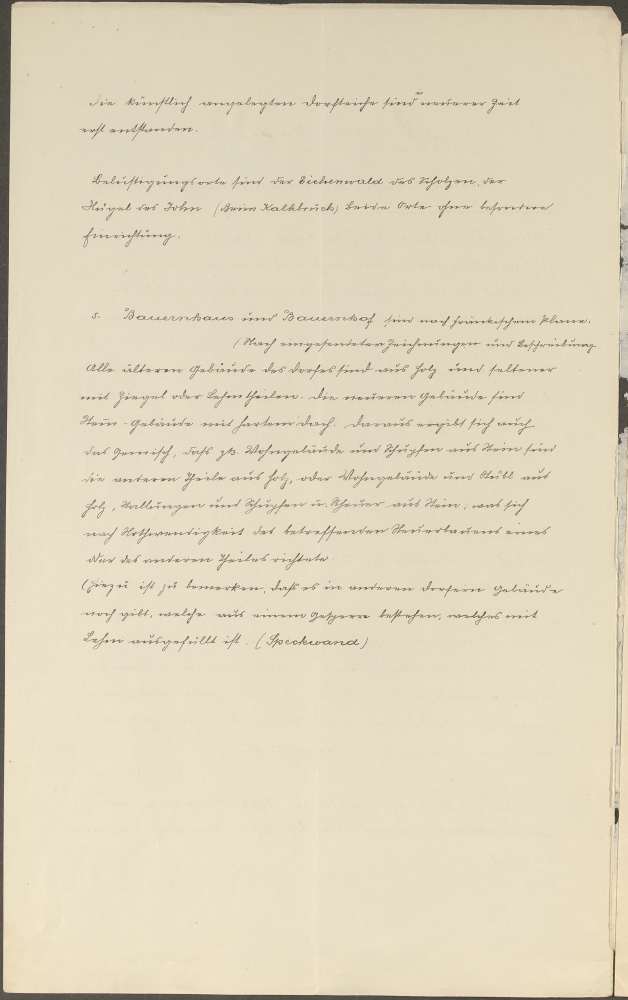 die künstlich angelegten Dorfteiche sind in neuerer Zeit
erst entstanden.
Belustigungsorte sind der Eichenwald des Scholzen, der
Hügel des John (Beim Kalkbruch) beide Orte ohne besondere
Einrichtung.
5. Bauernhaus und Bauernhof sind nach fränkischem Plane.
(Nach eingesendeten Zeichnungen und Beschreibung
Alle älteren Gebäude des Dorfes sind aus Holz und seltener
mit Ziegel oder Lehmtheilen. Die neueren Gebäude sind
Stein-Gebäude mit hartem Dach. Daraus ergibt sich auch
das Gemisch, daß zb. Wohngebäude und Schupfen aus Stein sind
die anderen Theile aus Holz, oder Wohngebäude und Stübl aus
Holz, Stallungen und Schupfen u. Scheuer aus Stein, was sich
nach Nothwendigkeit des betreffenden Neuerbauens eines
oder des anderen Theiles richtete.
(Hiezu ist zu bemerken, daß es in anderen Dörfern Gebäude
noch gibt, welche aus einem Gesperre bestehen, welches mit
Lehm ausgefüllt ist. (Speckwand)